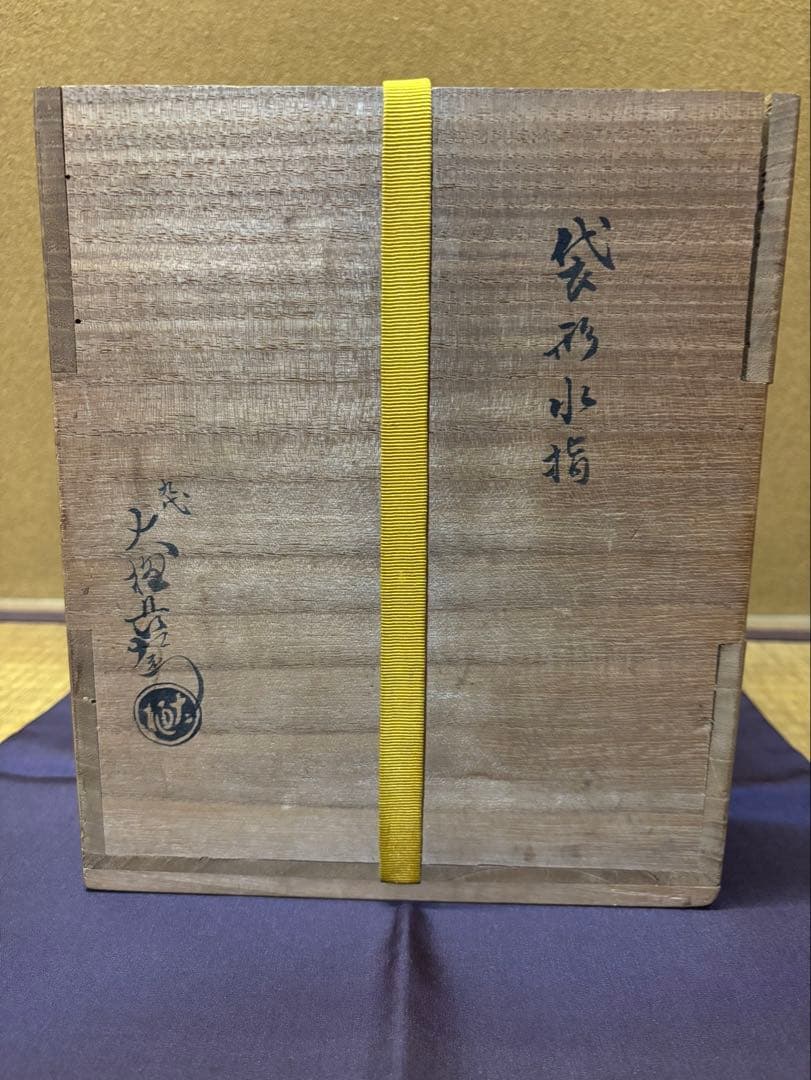 袋形水指
九代
大樋長左衛門